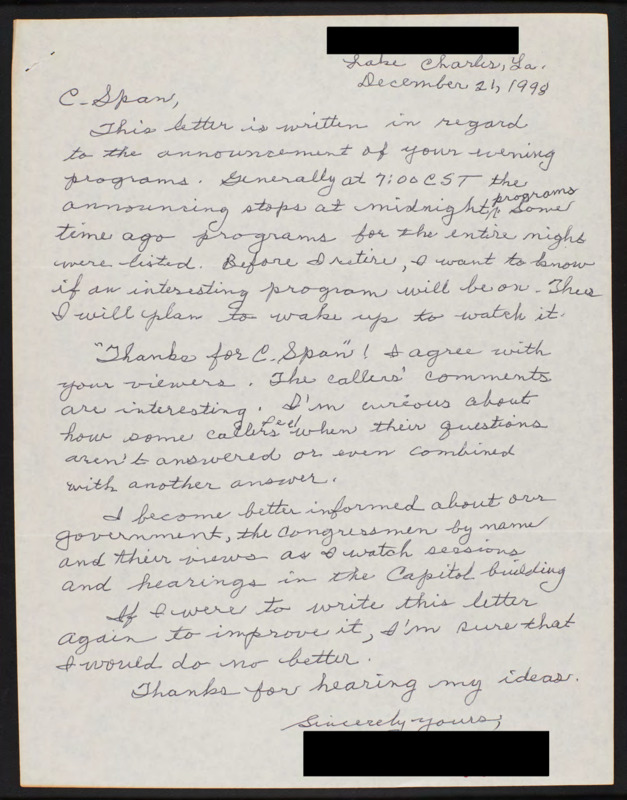 Lake Charles, La.
December 21, 1998
C-Span,
This letter is written in regard
to the announcement of your evening
programs. Generally at 7:00 CST the
announcing stops at midnight programs. Some
time ago programs for the entire night
were listed. Before I retire, I want to know
if an interesting program will be on. Then
I will plan to wake up to watch it.
"Thanks for C-Span"! I agree with
your viewers. The callers' comments
are interesting. I'm curious about
how some callers feel when their questions
aren't answered or even combined
with another answer.
I become better informed about our
government, the Congressmen by name
and their views as I watch sessions
and hearings in the Capitol building
If I were to write this letter
again to improve it, I'm sure that
I would do no better.
Thanks for hearing my ideas.
Sincerely yours,